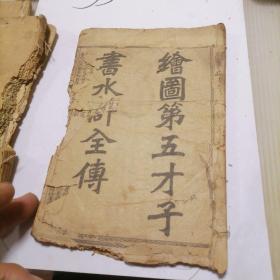 繪圖第五才子
書水滸全傳